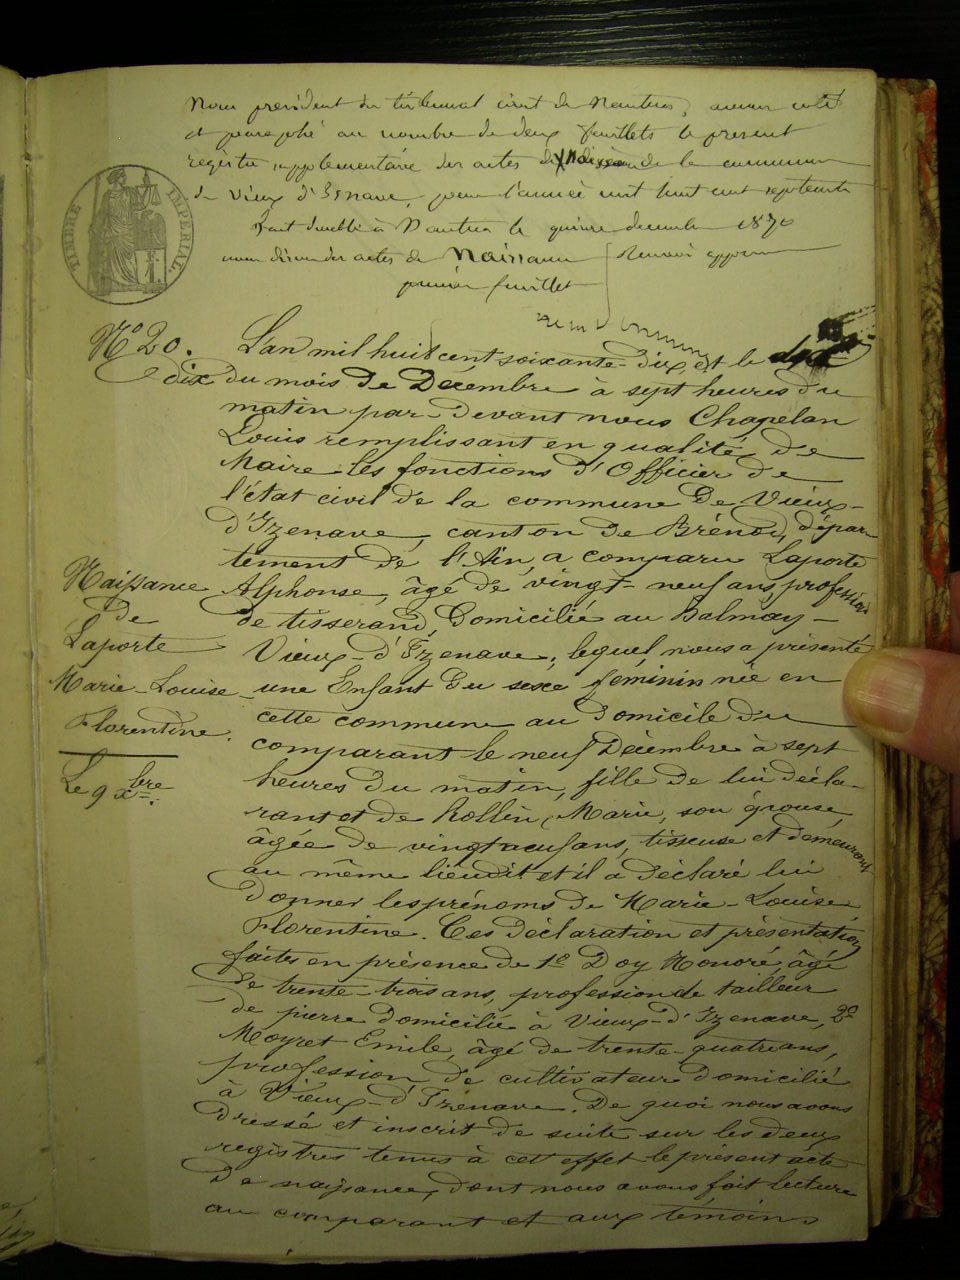 Nous président du tribunal civil de Nantua, avons coté
et paraphé au nombre de deux feuillets le présent
registre supplémentaire des actes de de la commune
de Vieux d'Izenave, pour l'année mil huit cent soixante
fait double à Nantua le quinze décembre 1870
nous disons des actes de Naissance Renvoi approuvé
premier feuillet
TIMBRE IMPÉRIAL
1 F.
N° 20.
L'an mil huit cent soixante-dix et le
dix du mois de Décembre à sept heures du
matin par-devant nous Chapelan
Louis remplissant en qualité de
Maire les fonctions d'Officier de
l'état civil de la commune de Vieux-
d'Izenave, canton de Brénod, dépar
tement de l'Ain, a comparu Laporte
Alphonse, âgé de vingt-neuf ans, profession
de tisserand, Domicilié au Balmay-
Vieux-d'Izenave, lequel nous a présenté
une Enfant du sexe féminin née en
cette commune au Domicile du
comparant le neuf Décembre à sept
heures du matin, fille de lui décla-
rant et de Rollin, Marie, son épouse,
âgée de vingt neuf ans, tisseuse et demeurant
au même lieudit et il a déclaré lui
donner les prénoms de Marie-Louise
Florentine. Ces déclaration et présentation
faites en présence de 1° Doy Honoré, âgé
de trente-trois ans, profession de tailleur
de pierre Domicilié à Vieux-d'Izenave, 2°
Moyret Emile, âgé de trente-quatre ans,
profession de cultivateur domicilié
à Vieux-d'Izenave. De quoi nous avons
dressé et inscrit de suite sur les deux
registres tenus à cet effet le présent acte
De naissance, dont nous avons fait lecture
au comparant et aux témoins
Naissance
de
Laporte
Marie-Louise
Florentine.
Le 9 Xbre.